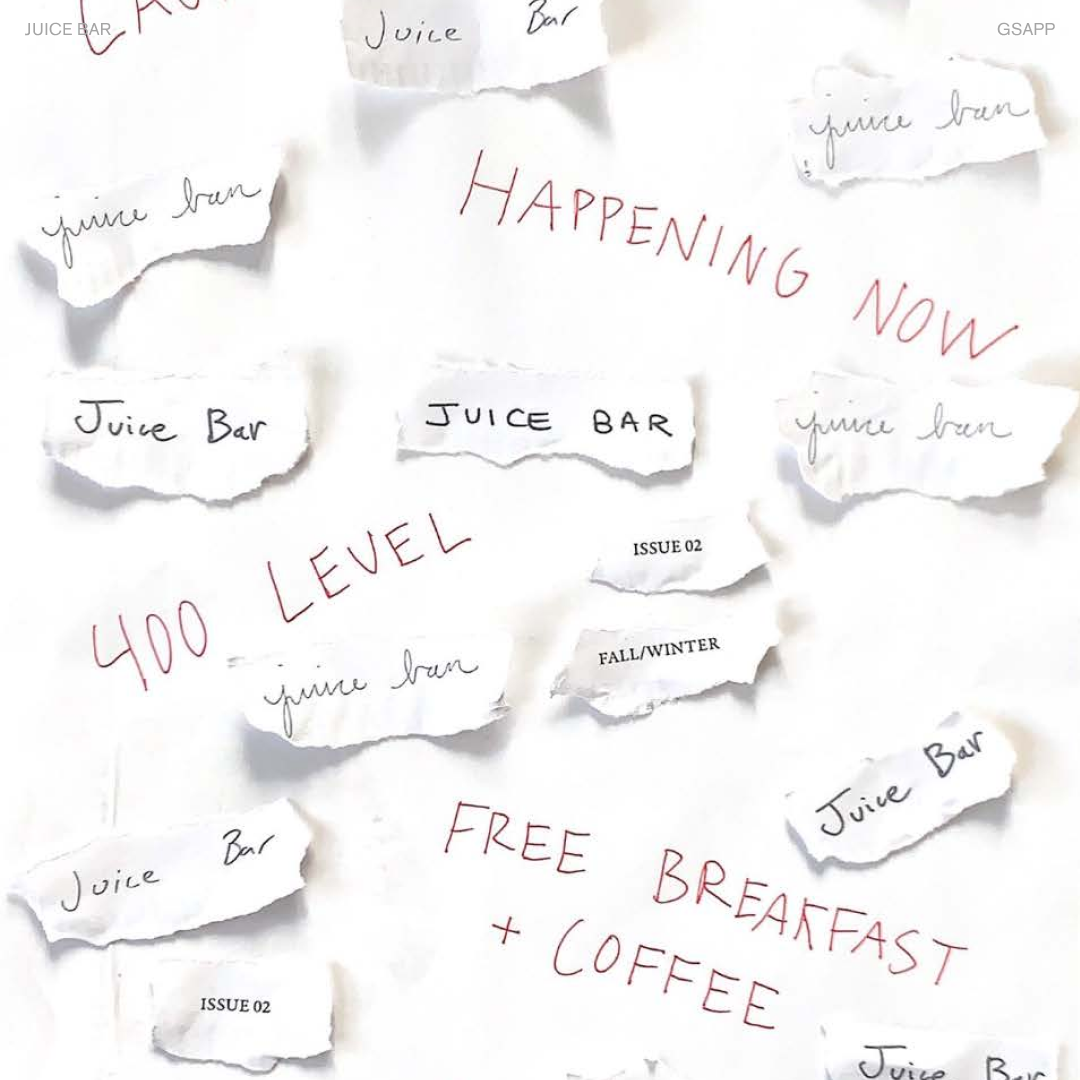 JUICE BAR
GSAPP
Juice Bar
juice bar
juice bar
HAPPENING NOW
Juice Bar
JUICE BAR
juice bar
400 LEVEL
ISSUE 02
FALL/WINTER
juice bar
Juice Bar
FREE BREAKFAST
+ COFFEE
Juice Bar
ISSUE 02
Juice Bar